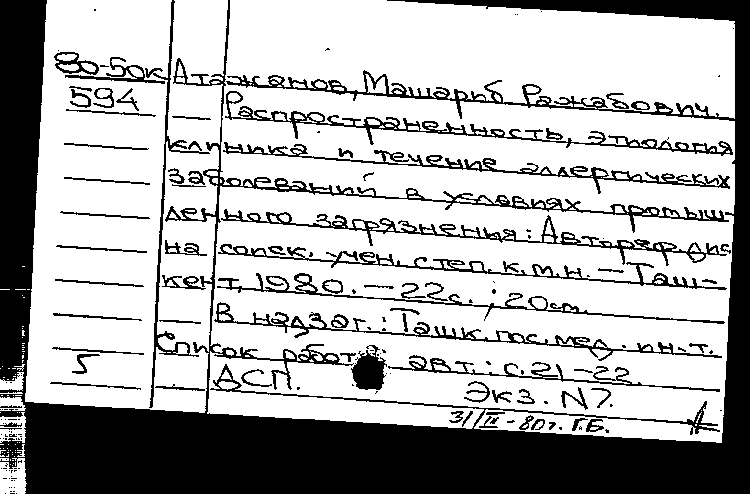 80-50к Атажанов, Машарыб Ражабович.
594 Распространенность, этиология
клиника и течение аллергических
заболеваний в условиях промыш-
ленного загрязнения: Автореф. дис
на соиск. учен. степ. к.м.н. — Таш-
кент, 1980. — 22с. ; 20см.
В надзаг.: Ташк. гос. мед. ин-т.
Список работ авт.: с.21-22.
5 ДСП. Экз. N7.
31/III-80г. Г.Б.